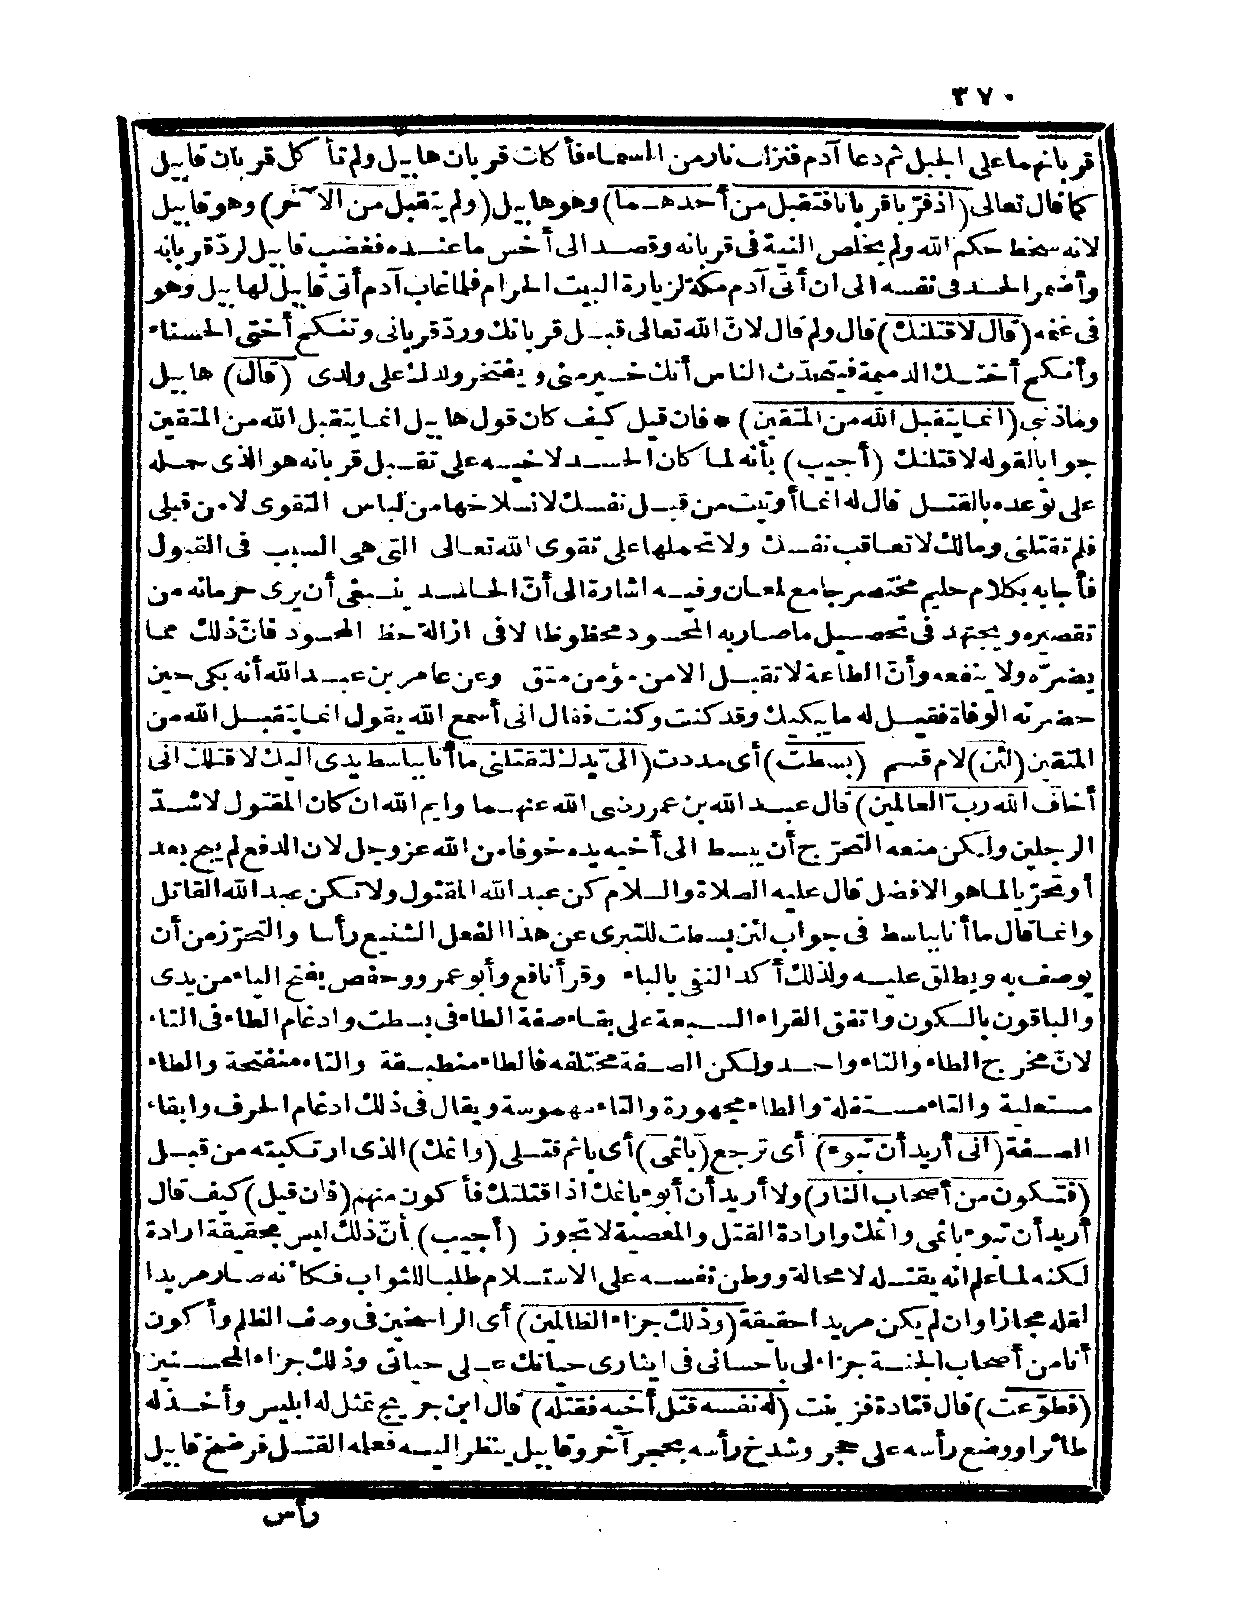 ٣٧٠
قربانهما على الجبل ثم دعا آدم فنزلت نار من السماء فأكلت قربان هابيل ولم تأكل قربان قابيل
كما قال تعالى (اذ قرّبا قربانا فتقبل من أحدهما) وهو هابيل (ولم يتقبل من الآخر) وهو قابيل
لانه سخط حكم الله ولم يخلص النية فى قربانه وقصد الى أخس ما عنده فغضب قابيل لردّ قربانه
وأضمر الحسد فى نفسه الى ان أتى آدم مكة لزيارة البيت الحرام فلما غاب آدم أتى قابيل لهابيل وهو
فى غنمه (قال لاقتلنك) قال ولم قال لانّ الله تعالى قبل قربانك وردّ قربانى وتنكح أختى الحسناء
وأنكح أختك الدميمة فيتحدّث الناس أنك خير منى ويفتخر ولدك على ولدى (قال) هابيل
وما ذنبى (انما يتقبل الله من المتقين) * فان قيل كيف كان قول هابيل انما يتقبل الله من المتقين
جوابا لقوله لاقتلنك (أجيب) بأنه لما كان الحسد لاخيه على تقبل قربانه هو الذى حمله
على توعده بالقتل قال له انما أوتيت من قبل نفسك لانسلاخها من لباس التقوى لا من قبلى
فلم تقتلنى ومالك لا تعاقب نفسك ولا تحملها على تقوى الله تعالى التى هى السبب فى القبول
فأجابه بكلام حليم مختصر جامع لمعان وفيه اشارة الى أنّ الحاسد ينبغى أن يرى حرمانه من
تقصيره ويجتهد فى تحصيل ما صار به المحسود محظوظا لا فى ازالة حظ المحسود فانّ ذلك مما
يضرّه ولا ينفعه وأنّ الطاعة لا تقبل الا من مؤمن متق وعن عامر بن عبد الله أنه بكى حين
حضرته الوفاة فقيل له ما يبكيك وقد كنت وكنت فقال انى أسمع الله يقول انما يتقبل الله من
المتقين (لئن) لام قسم (بسطت) أى مددت (الىّ يدك لتقتلنى ما أنا بباسط يدى اليك لاقتلك انى
أخاف الله رب العالمين) قال عبد الله بن عمر رضى الله عنهما وايم الله ان كان المقتول لاشدّ
الرجلين ولكن منعه التحرّج أن يبسط الى أخيه يده خوفا من الله عز وجل لان الدفع لم يبح بعد
أو تحرّيا لما هو الافضل قال عليه الصلاة والسلام كن عبد الله المقتول ولا تكن عبد الله القاتل
وانما قال ما أنا بباسط فى جواب لئن بسطت للتبرى عن هذا الفعل الشنيع رأسا والتحرّز من أن
يوصف به ويطلق عليه ولذلك أكد النفى بالباء وقرأ نافع وأبو عمرو وحفص بفتح الياء من يدى
والباقون بالسكون واتفق القراء السبعة على بقاء صفة الطاء فى بسطت وادغام الطاء فى التاء
لانّ مخرج الطاء والتاء واحد ولكن الصفة مختلفه فالطاء منطبقة والتاء منفتحة والطاء
مستعلية والتاء مستفلة والطاء مجهورة والتاء مهموسة ويقال فى ذلك ادغام الحرف وابقاء
الصفة (انى أريد أن تبوء) أى ترجع (باثمى) أى باثم قتلى (واثمك) الذى ارتكبته من قبل
(فتكون من أصحاب النار) ولا أريد أن أبوء باثمك اذا قتلتك فأكون منهم (فان قيل) كيف قال
أريد أن تبوء باثمى واثمك وارادة القتل والمعصية لا تجوز (أجيب) بأنّ ذلك ليس بحقيقة ارادة
لكنه لما علم انه يقتله لا محالة ووطن نفسه على الاستسلام طلبا للثواب فكأنه صار مريدا
لقتله مجازا وان لم يكن مريدا حقيقة (وذلك جزاء الظالمين) أى الراسخين فى وصف الظلم وأكون
أنا من أصحاب الجنة جزاء لى باحسانى فى ايثارى حياتك على حياتى وذلك جزاء المحسنين
(فطوّعت) قال قتادة فزينت (له نفسه قتل أخيه فقتله) قال ابن جريج تمثل له ابليس وأخذ له
طائرا ووضع رأسه على حجر وشدخ رأسه بحجر آخر وقابيل ينظر اليه فعلمه القتل فرضخ قابيل
رأس